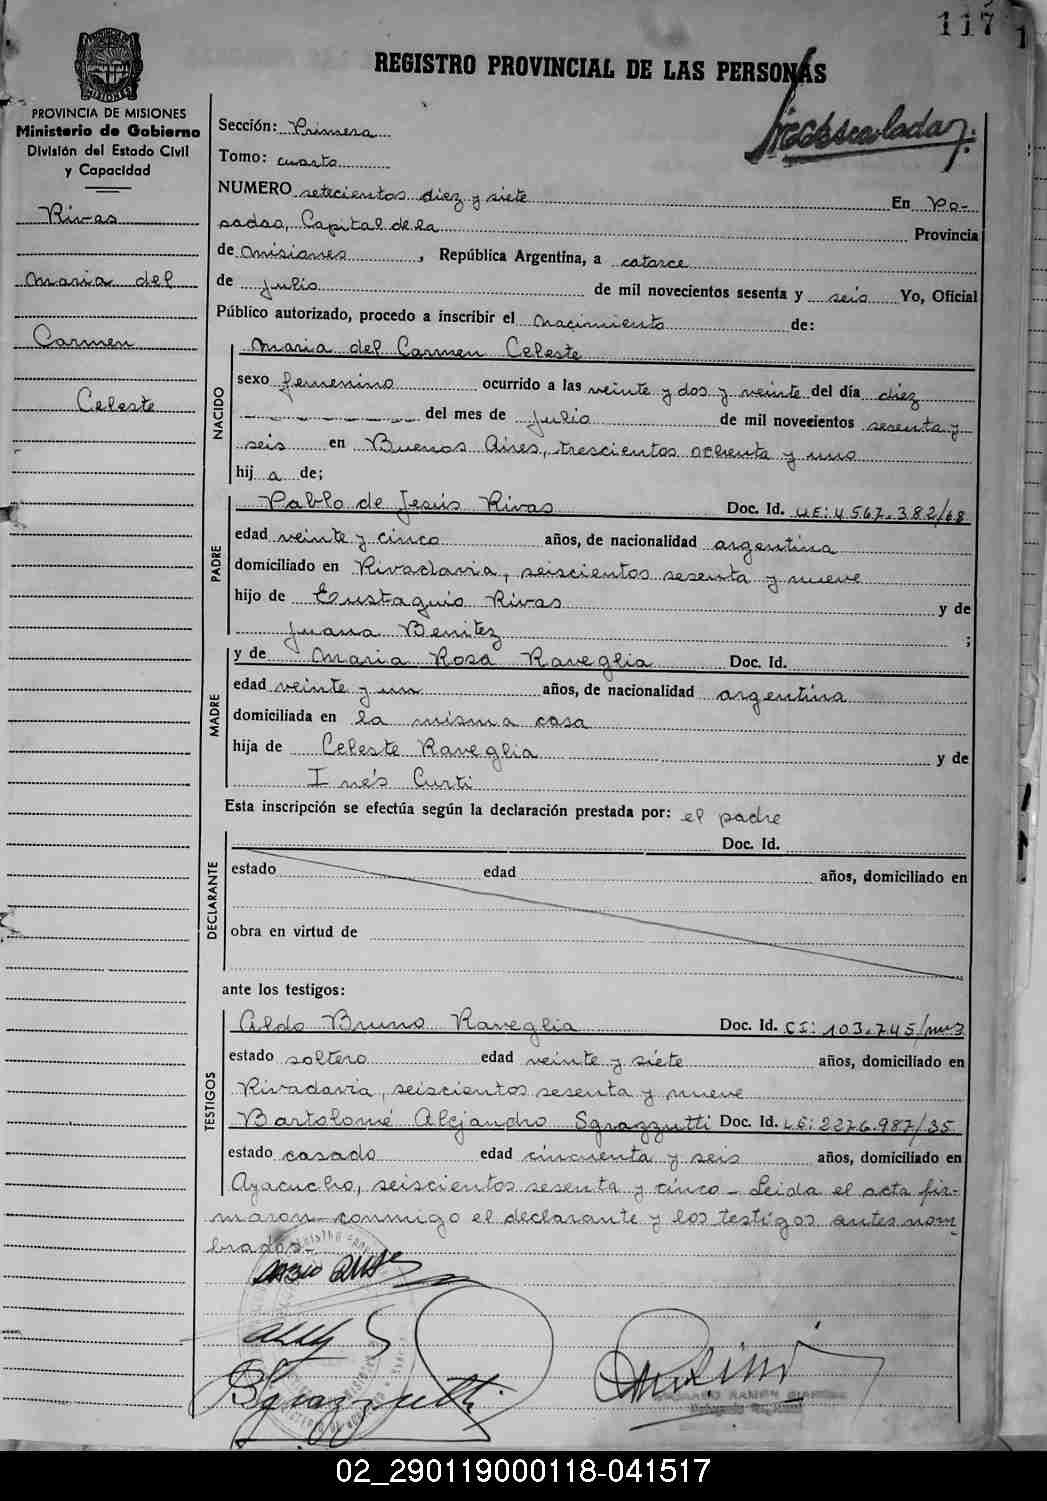 117
REGISTRO PROVINCIAL DE LAS PERSONAS
PROVINCIA DE MISIONES
Ministerio de Gobierno
División del Estado Civil
y Capacidad
Rivas
Maria del
Carmen
Celeste
Sección: Primera
Tomo: cuarto
NUMERO setecientos diez y siete En Po-
sadas, Capital de la Provincia
de Misiones, República Argentina, a catorce
de Julio de mil novecientos sesenta y seis Yo, Oficial
Público autorizado, procedo a inscribir el nacimiento de:
NACIDO
Maria del Carmen Celeste
sexo femenino ocurrido a las veinte y dos y veinte del día diez
del mes de Julio de mil novecientos sesenta y
seis en Buenos Aires, trescientos ochenta y uno
hij a de;
PADRE
Pablo de Jesús Rivas Doc. Id. LE: 4.567.382/68
edad veinte y cinco años, de nacionalidad argentina
domiciliado en Rivadavia, seiscientos sesenta y nueve
hijo de Eustaquio Rivas y de
Juana Benitez ;
MADRE
y de Maria Rosa Raveglia Doc. Id.
edad veinte y un años, de nacionalidad argentina
domiciliada en la misma casa
hija de Celeste Raveglia y de
Inés Curti
Esta inscripción se efectúa según la declaración prestada por: el padre
DECLARANTE
Doc. Id.
estado edad años, domiciliado en
obra en virtud de
ante los testigos:
TESTIGOS
Aldo Bruno Raveglia Doc. Id. CI: 103.745/
estado soltero edad veinte y siete años, domiciliado en
Rivadavia, seiscientos sesenta y nueve
Bartolomé Alejandro Sgrazzutti Doc. Id. LE: 2276.987/35
estado casado edad cincuenta y seis años, domiciliado en
Ayacucho, seiscientos sesenta y cinco - Leida el acta fir-
maron conmigo el declarante y los testigos antes nom-
brados.-
Sgrazzutti
RAMON
02_290119000118-041517